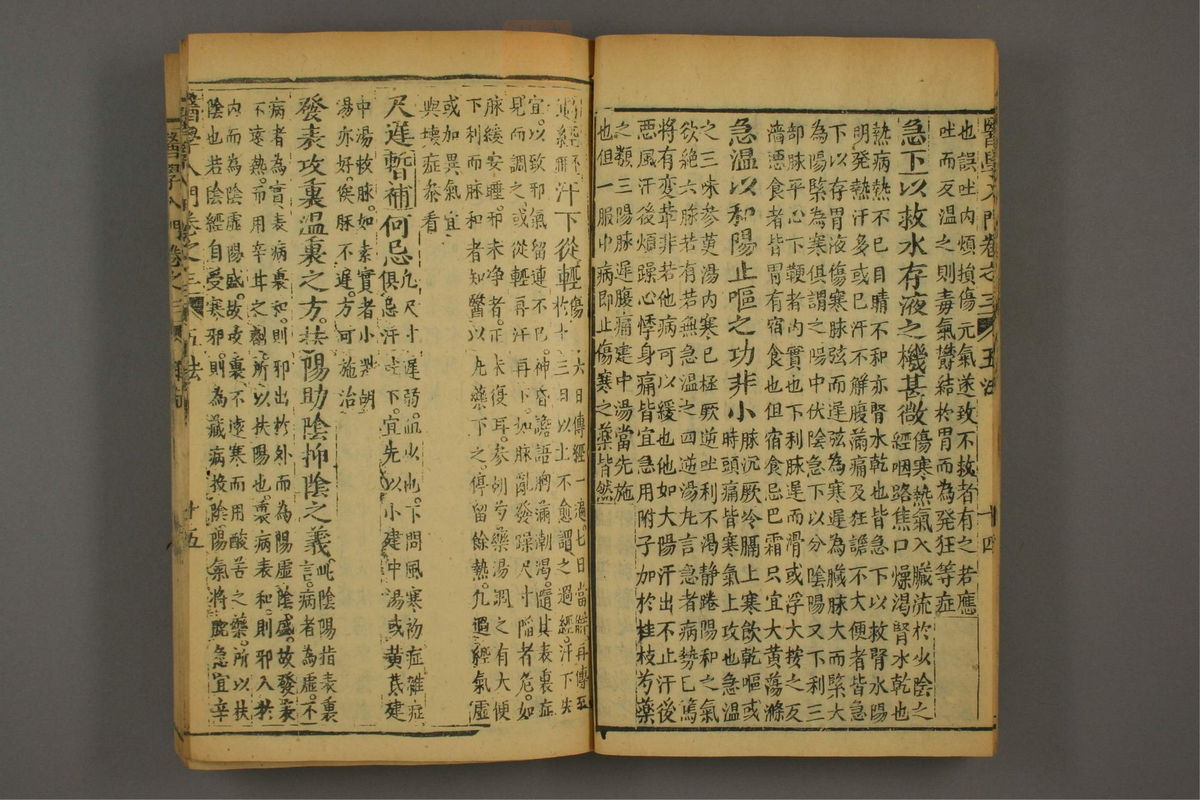 醫學入門卷之三 五法 十四
也誤吐內煩損傷元氣遂致不救者有之若應
吐而反溫之則毒氣鬱結於胃而為發狂等症
急下以救水存液之機甚微傷寒熱氣入臟流於少陰之
經咽路焦口燥渴腎水乾也
熱病熱不已目睛不和亦腎水乾也皆急下以救腎水陽
明發熱汗多或已汗不解腹滿痛及狂譫不大便者皆急
下以存胃液傷寒脉弦而遲弦為寒遲為臟脉大而緊大
為陽緊為寒俱謂之陽中伏陰急下以分陰陽又下利三
部脉平心下鞕者內實也下利脉遲而滑或浮大按之反
濇惡食者皆胃有宿食也但宿食忌巴霜只宜大黃蕩滌
急溫以和陽止嘔之功非小脉沉厥冷膈上寒飲乾嘔或
時頭痛皆寒氣上攻也急溫
之三味參萸湯內寒已極厥逆吐利不渴靜踡陽和之氣
欲絕六脉若有若無急溫之四逆湯凡言急者病勢已篤
將有變革非若他病可以緩也他如大陽汗出不止汗後
惡風汗後煩躁心悸身痛皆宜急用附子加於桂枝芍藥
之類三陽脉遲腹痛建中湯當先施
也但一服中病即止傷寒之藥皆然
汗下從輕
傷
六日傳經一遍七日當
再傳
三日以上不愈謂之過經汗下失
宜以致邪氣留連不已神昏譫語胸滿潮渴隨其表裏症
見而調之或從輕再汗再下如脉亂發躁尺寸陷者危如
脉緩安睡邪未淨者正未復耳參胡芍藥湯調之有大便
下利而脉和者知醫以丸藥下之停留餘熱凡過經氣虛
或加異氣宜
與壞症叅看
尺遲暫補何忌凡尺寸遲弱血少也下問風寒初症雜症
俱忌汗吐下宜先以小建中湯或黃芪建
中湯救脉如素實者小
湯亦好俟脉不遲方可施治
發表攻裏溫裏之方扶陽助陰抑陰之義此陰陽指表裏
言病者為虛不
病者為盲表病裏和則邪出於外而為陽虛陰盛故發表
不遠熱而用辛甘之劑所以扶陽也裏病表和則邪入於
內而為陰虛陽盛故攻裏不遠寒而用酸苦之藥所以扶
陰也若陰經自受寒邪則為臟病投陰陽氣將脫急宜辛
醫學入門卷之三 五法 十五